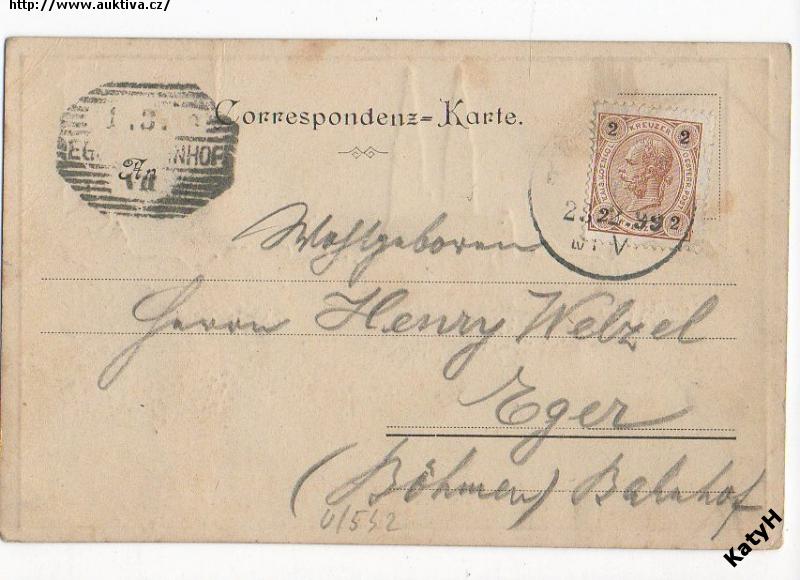 http://www.auktiva.cz/
Correspondenz=Karte.
An
2 KREUZER 2
2 2
99
Wohlgeboren
Herrn Henry Welzel
Eger
(Böhmen) Bahnhof
U/532
KatyH